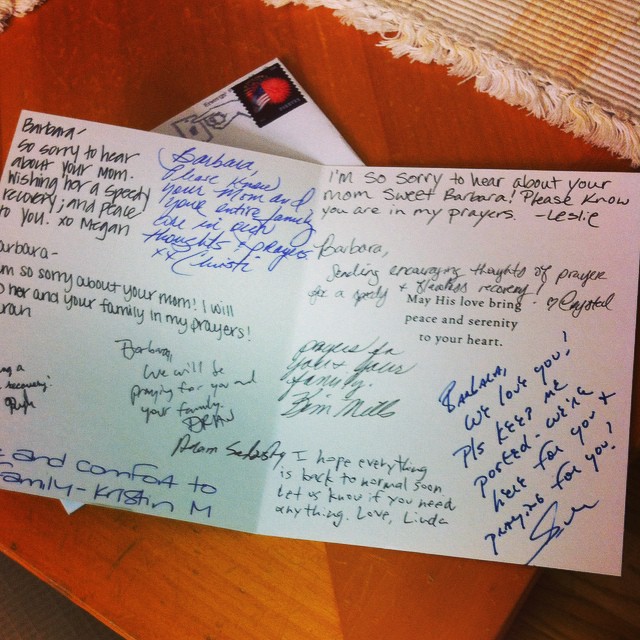 Barbara-
So sorry to hear
about your Mom.
Wishing her a speedy
recovery, and peace
to you. xo Megan
Barbara,
Please know
your Mom and
your entire family
are in our
thoughts & prayers
xx Christi
arbara-
m so sorry about your mom! I will
her and your family in my prayers!
Barbara,
We will be
praying for you and
your family.
recovery.
and comfort to
amily - Kristin M
I'm so sorry to hear about your
mom Sweet Barbara! Please know
you are in my prayers. -Leslie
Barbara,
Sending encouraging thoughts & prayer
for a speedy & recovery! ♡ Crystal
May His love bring
peace and serenity
to your heart.
prayers for
you & your
family.
Kim Mills
I hope everything
is back to normal soon.
Let us know if you need
anything. Love, Linda
Barbara,
We love you!
Pls keep me
posted - we're
here for you &
praying for you!